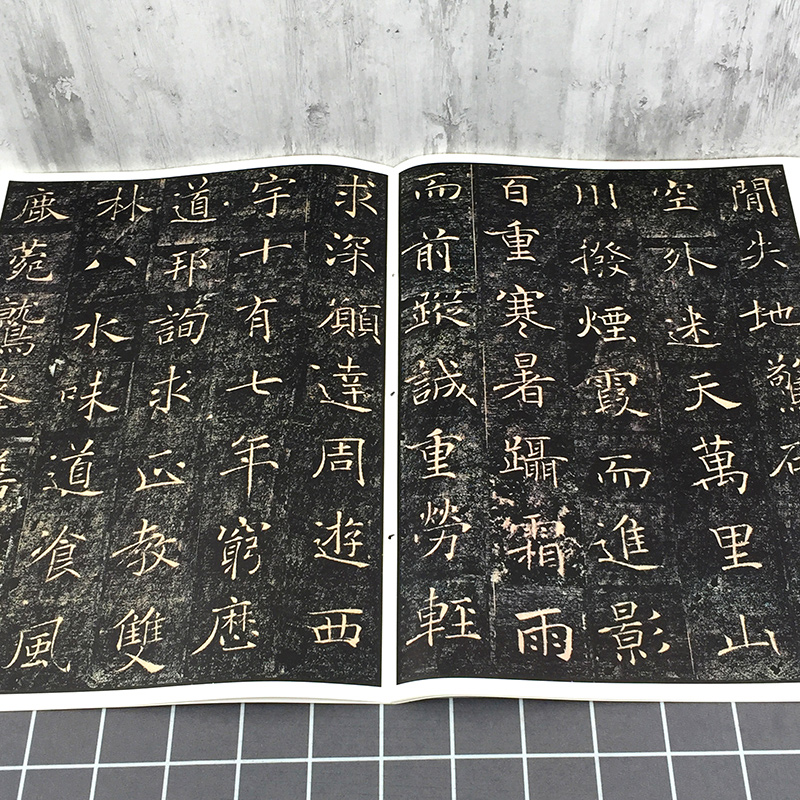 間失地驚
空外迷天萬里山
川撥煙霞而進影
百重寒暑躡霜雨
而前蹤誠重勞輕
求深願達周遊西
宇十有七年窮歷
道邦詢求正教雙
林八水味道飡風
鹿菀鷲